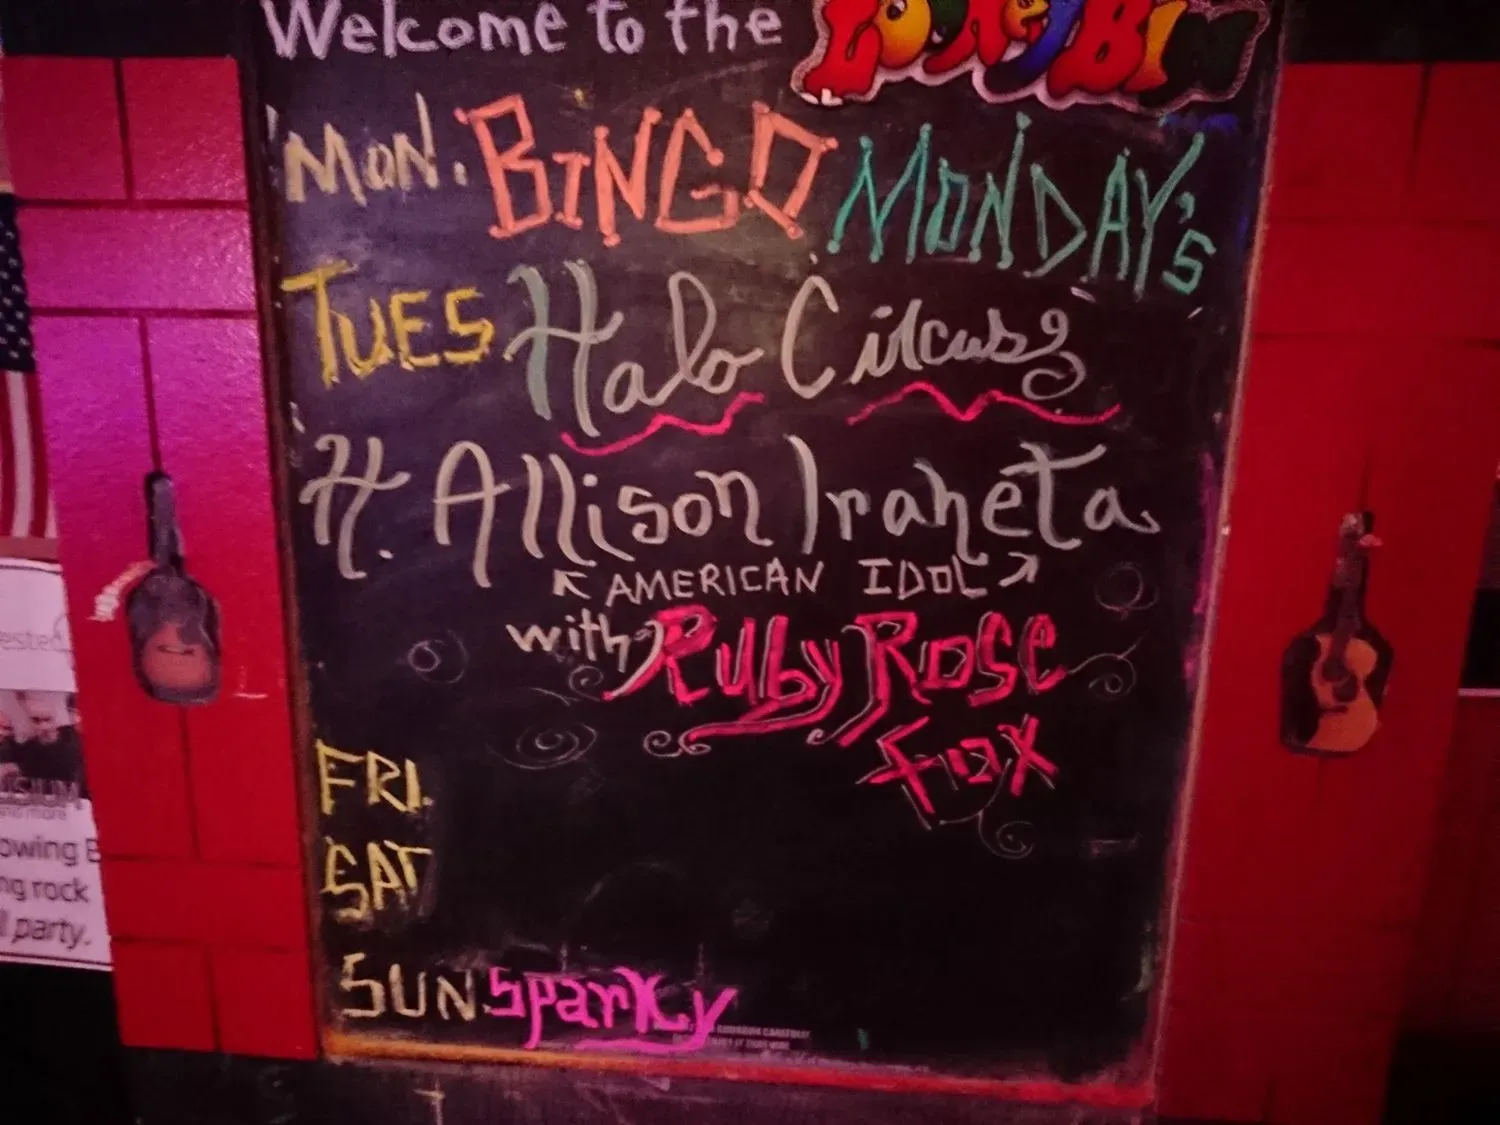 Welcome to the LOONEY BIN
MON. BINGO MONDAY's
TUES Halo Circus
H. Allison Iraheta
AMERICAN IDOL
with Ruby Rose
Fox
FRI.
SAT
SUN. Sparky
owing B
ng rock
l party.
and more